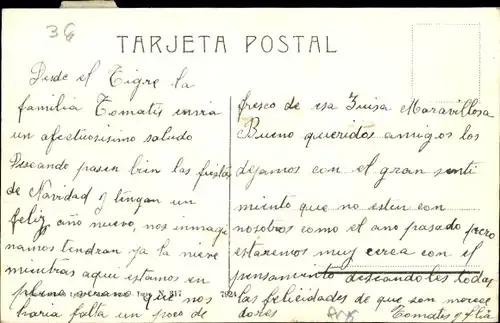 36
TARJETA POSTAL
Desde el Tigre la
familia Tomatis envia
un afectiosisimo saludo
Deseando pasen bien las fiestas
de Navidad y tengan un
feliz año nuevo, nos imagi
namos tendran ya la nieve
mientras aqui estamos en
pleno verano que nos
haria falta un poco de
N 317
7924
fresco de esa Suisa Maravillosa
Bueno queridos amigos los
dejamos con el gran senti
miento que no esten con
nosotros como el ano pasado pero
estaremos muy cerca con el
pensamiento deseandoles todas
las felicidades de que son merece
dores
Tomatis y flia